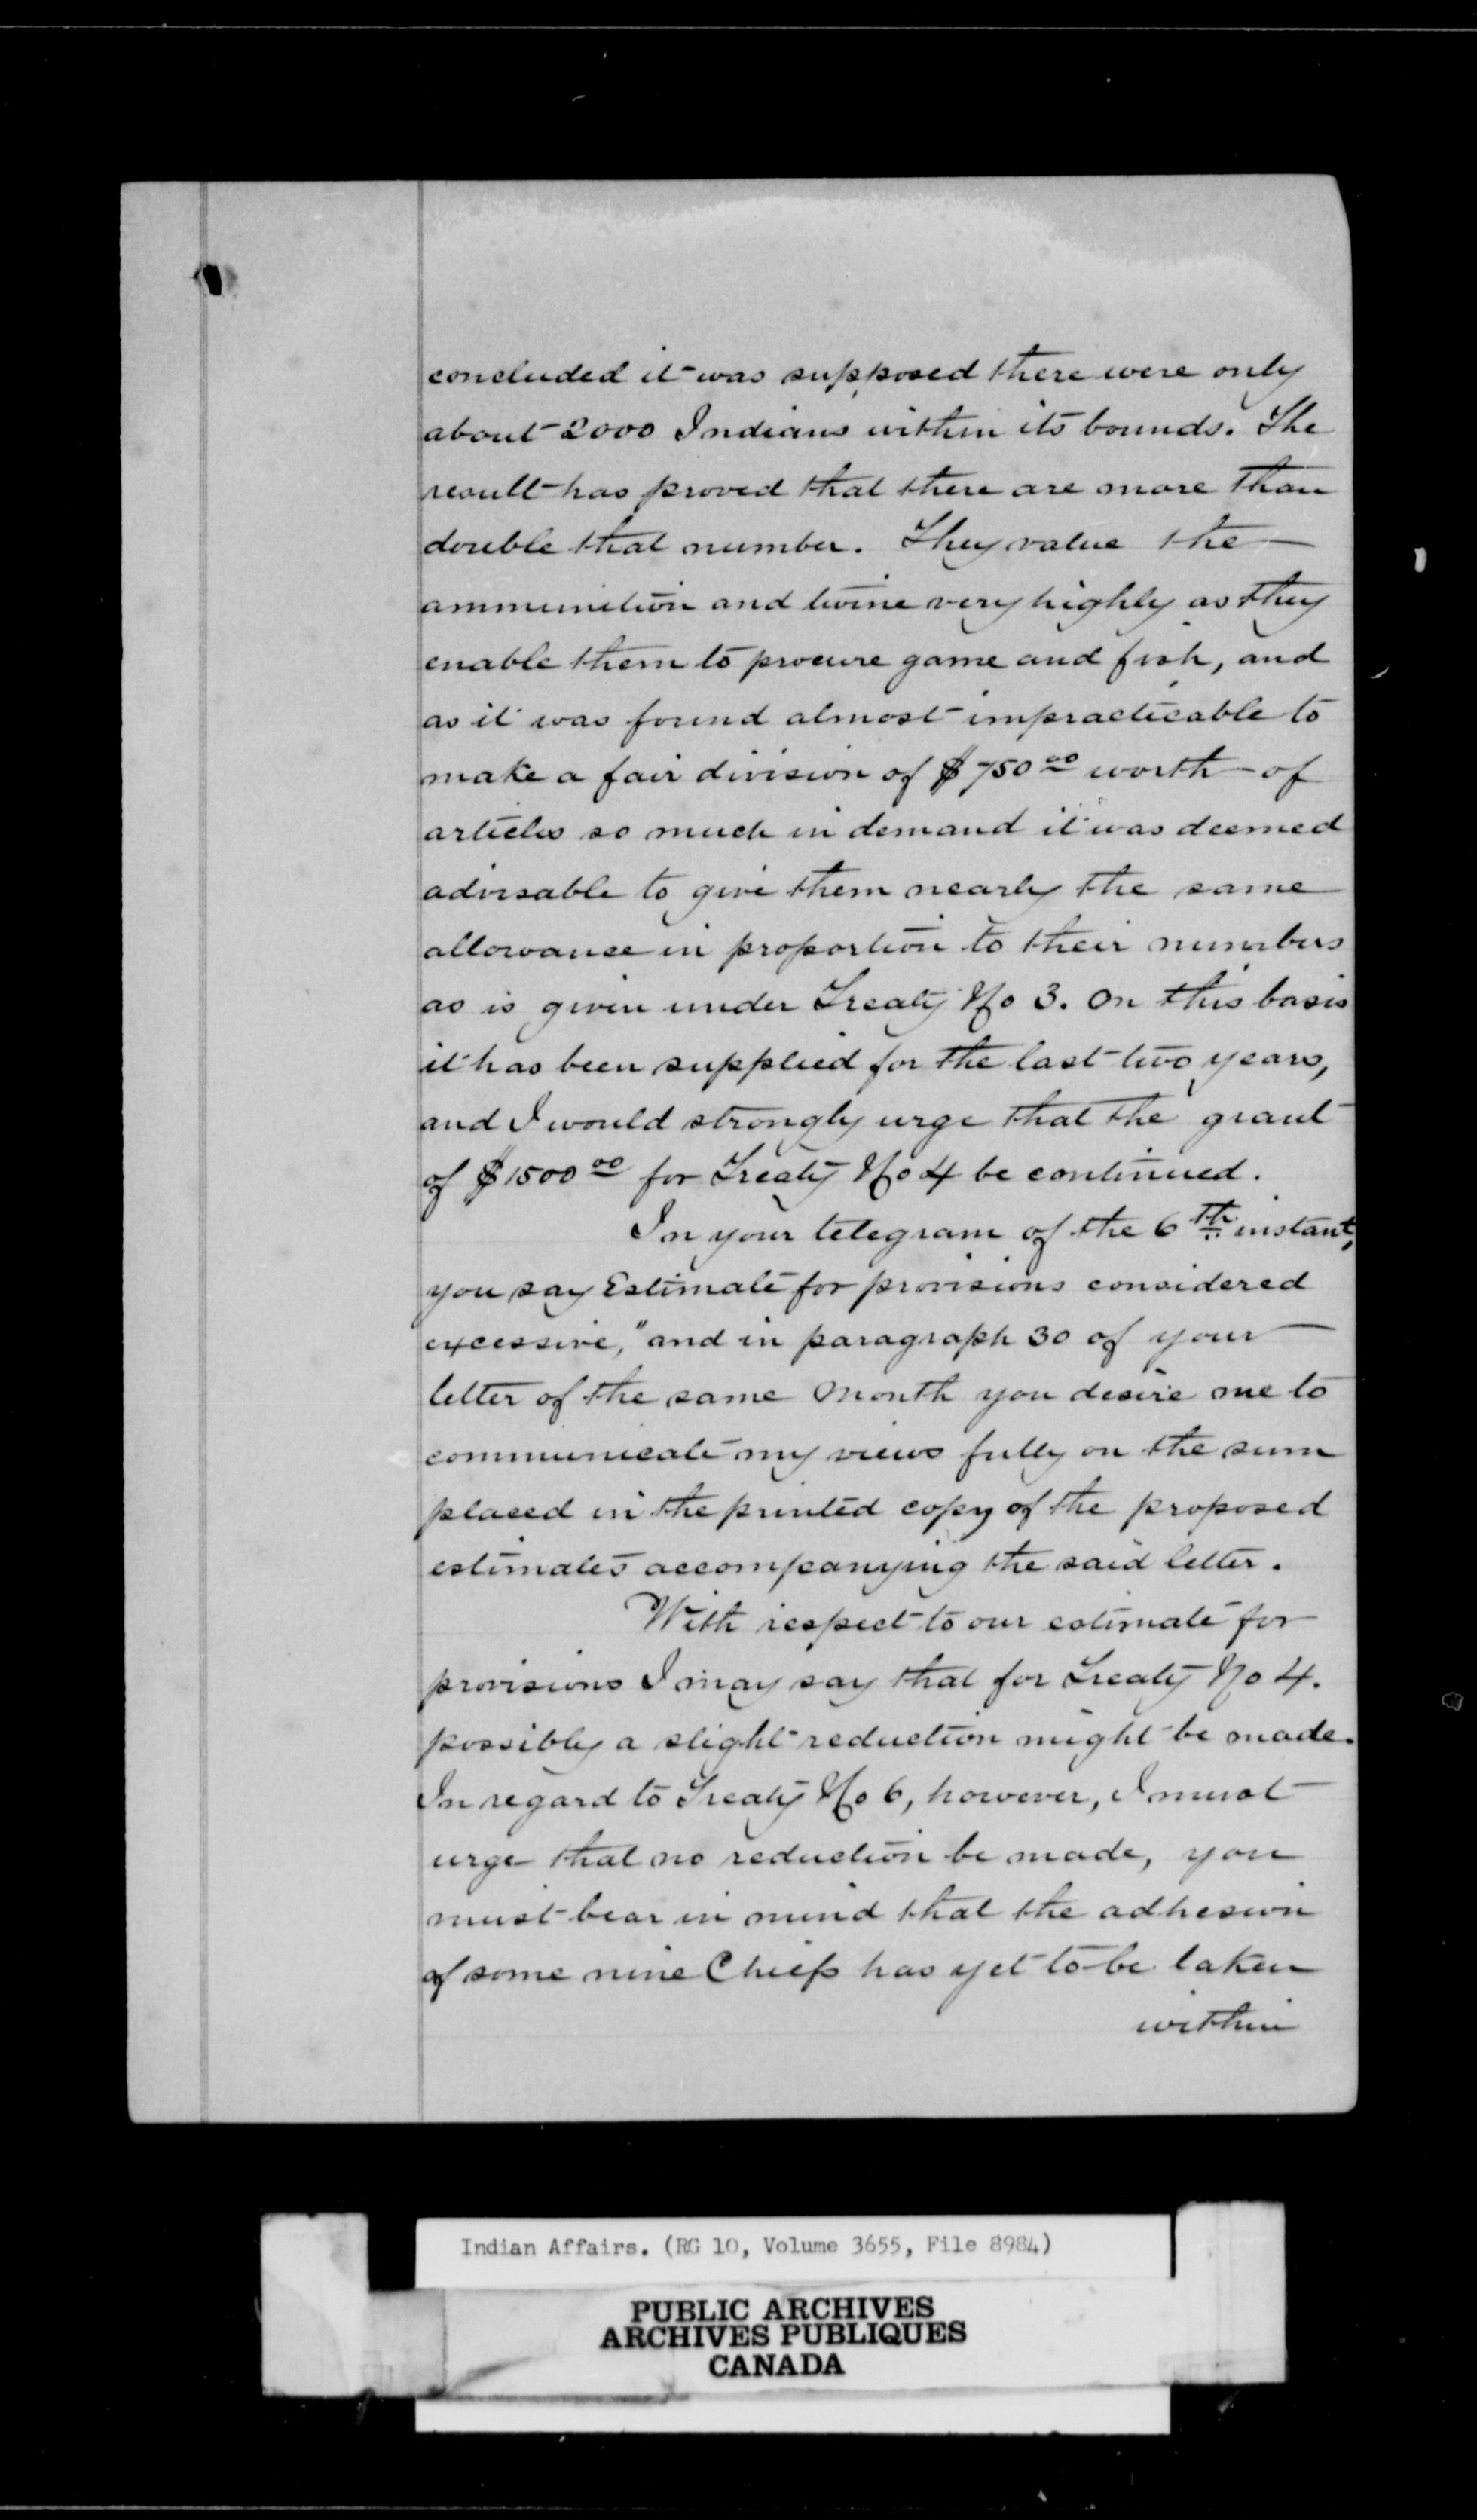 concluded it was supposed there were only
about 2000 Indians within its bounds. The
result has proved that there are more than
double that number. They value the
ammunition and twine very highly as they
enable them to procure game and fish, and
as it was found almost impracticable to
make a fair division of $750 00 worth of
articles so much in demand it was deemed
advisable to give them nearly the same
allowance in proportion to their numbers
as is given under Treaty No 3. On this basis
it has been supplied for the last two years,
and I would strongly urge that the grant
of $1500 00 for Treaty No 4 be continued.
In your telegram of the 6th instant,
you say Estimate for provisions considered
excessive," and in paragraph 30 of your
letter of the same month you desire me to
communicate my views fully on the sum
placed in the printed copy of the proposed
estimates accompanying the said letter.
With respect to our estimate for
provisions I may say that for Treaty No 4.
possibly a slight reduction might be made.
In regard to Treaty No 6, however, I must
urge that no reduction be made, you
must bear in mind that the adhesion
of some nine Chiefs has yet to be taken
within
Indian Affairs. (RG 10, Volume 3655, File 8984)
PUBLIC ARCHIVES
ARCHIVES PUBLIQUES
CANADA